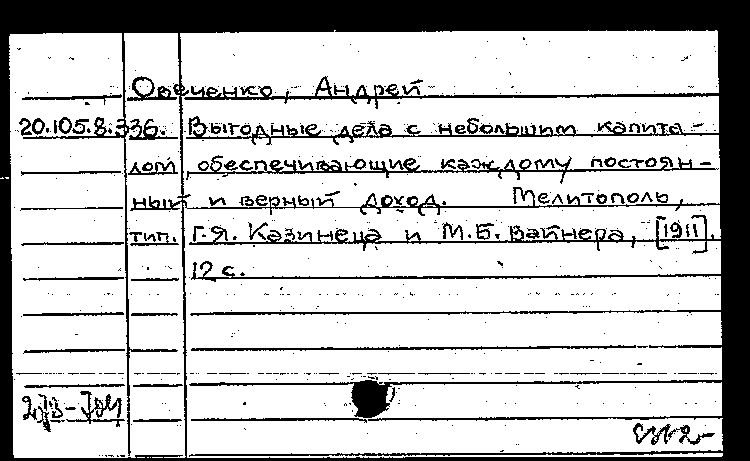 Овеченко, Андрей
20.105.8.336. Выгодные дела с небольшим капита-
лом, обеспечивающие каждому постоян-
ный и верный доход. Мелитополь,
тип. Г.Я. Казинеца и М.Б. Вайнера, [1911].
12 с.